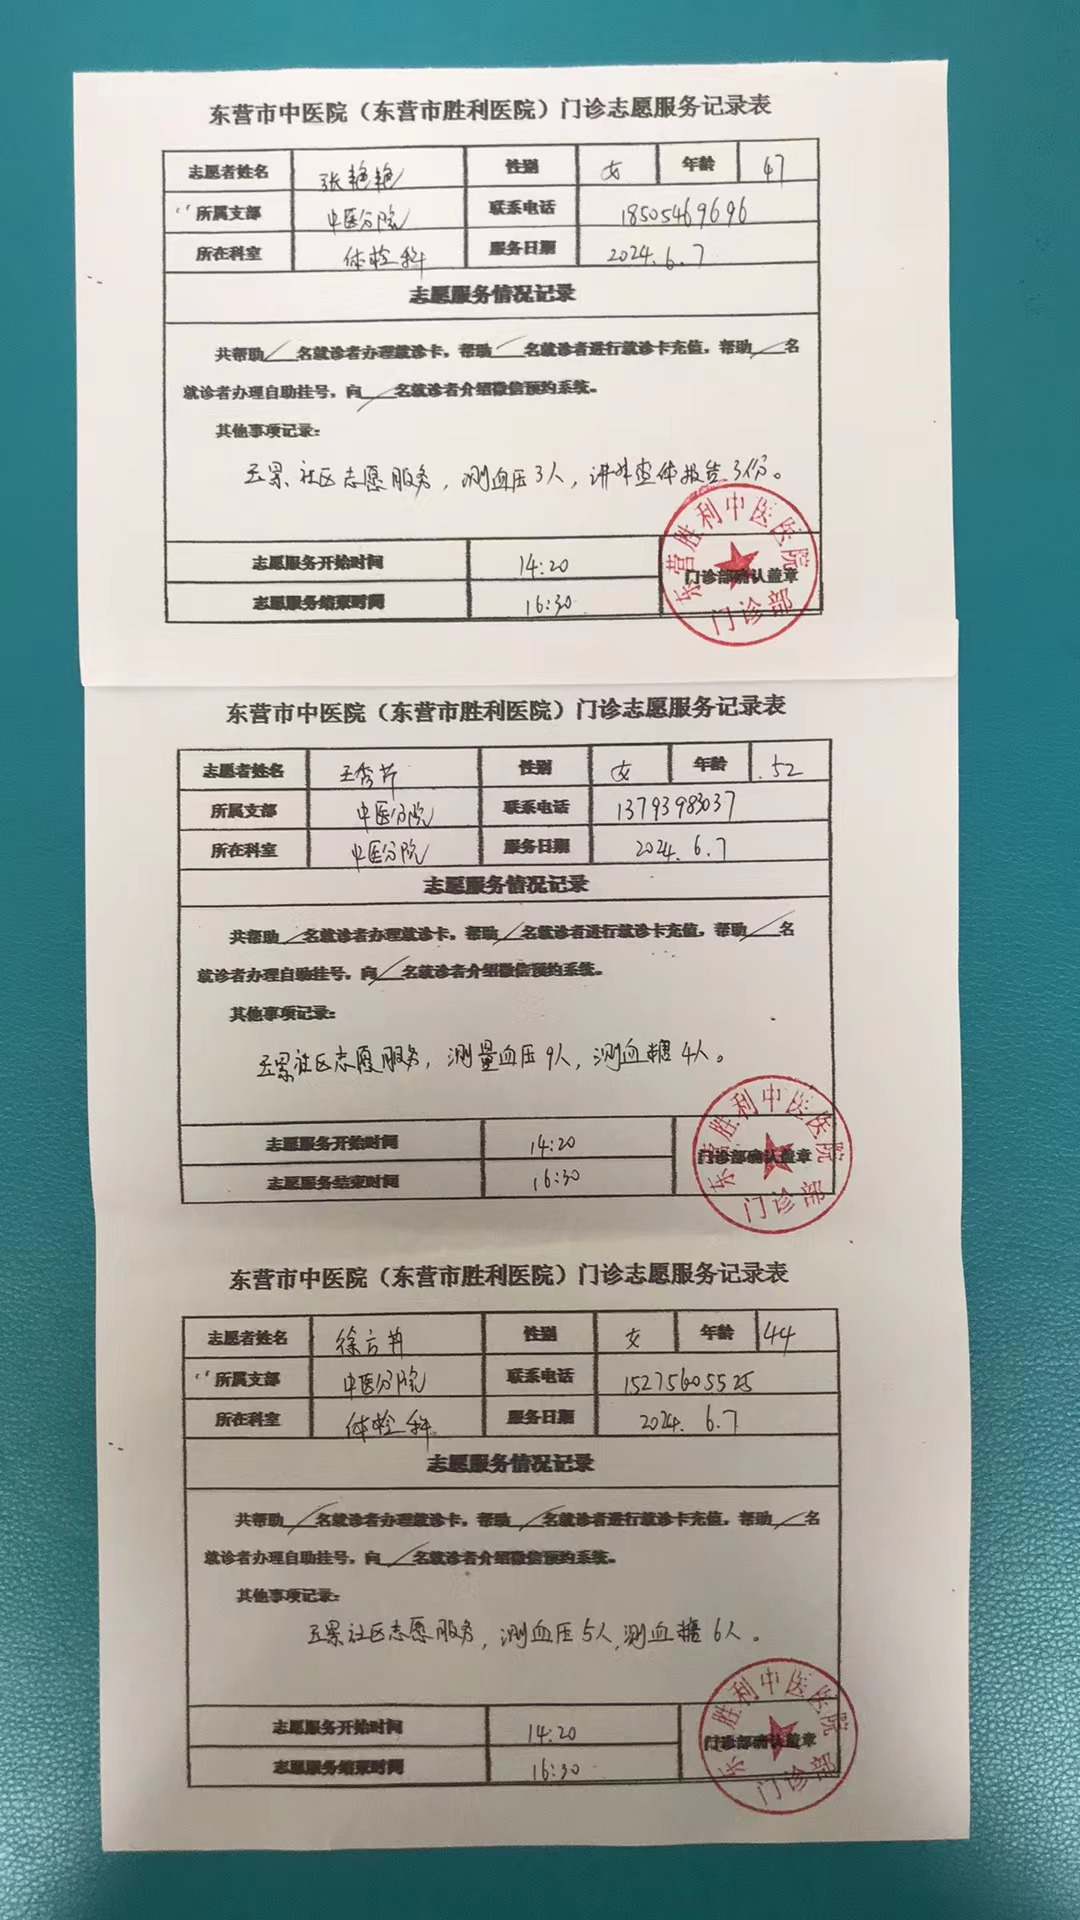 东营市中医院（东营市胜利医院）门诊志愿服务记录表
志愿者姓名 张艳艳 性别 女 年龄 47
所属支部 中医分院 联系电话 18505469696
所在科室 体检科 服务日期 2024.6.7
志愿服务情况记录
共帮助/名就诊者办理就诊卡，帮助/名就诊者进行就诊卡充值，帮助/名
就诊者办理自助挂号，向/名就诊者介绍微信预约系统。
其他事项记录：
社区志愿服务，测血压3人，讲解查体报告3份。
志愿服务开始时间 14:20 门诊部确认盖章
志愿服务结束时间 16:30
东营胜利中医医院
门诊部
东营市中医院（东营市胜利医院）门诊志愿服务记录表
志愿者姓名 王秀芹 性别 女 年龄 52
所属支部 中医分院 联系电话 13793983037
所在科室 中医分院 服务日期 2024.6.7
志愿服务情况记录
共帮助/名就诊者办理就诊卡，帮助/名就诊者进行就诊卡充值，帮助/名
就诊者办理自助挂号，向/名就诊者介绍微信预约系统。
其他事项记录：
社区志愿服务，测量血压9人，测血糖4人。
志愿服务开始时间 14:20 门诊部确认盖章
志愿服务结束时间 16:30
东营胜利中医医院
门诊部
东营市中医院（东营市胜利医院）门诊志愿服务记录表
志愿者姓名 徐 性别 女 年龄 44
所属支部 中医分院 联系电话 15275605525
所在科室 体检科 服务日期 2024.6.7
志愿服务情况记录
共帮助/名就诊者办理就诊卡，帮助/名就诊者进行就诊卡充值，帮助/名
就诊者办理自助挂号，向/名就诊者介绍微信预约系统。
其他事项记录：
社区志愿服务，测血压5人，测血糖6人。
志愿服务开始时间 14:20 门诊部确认盖章
志愿服务结束时间 16:30
东营胜利中医医院
门诊部